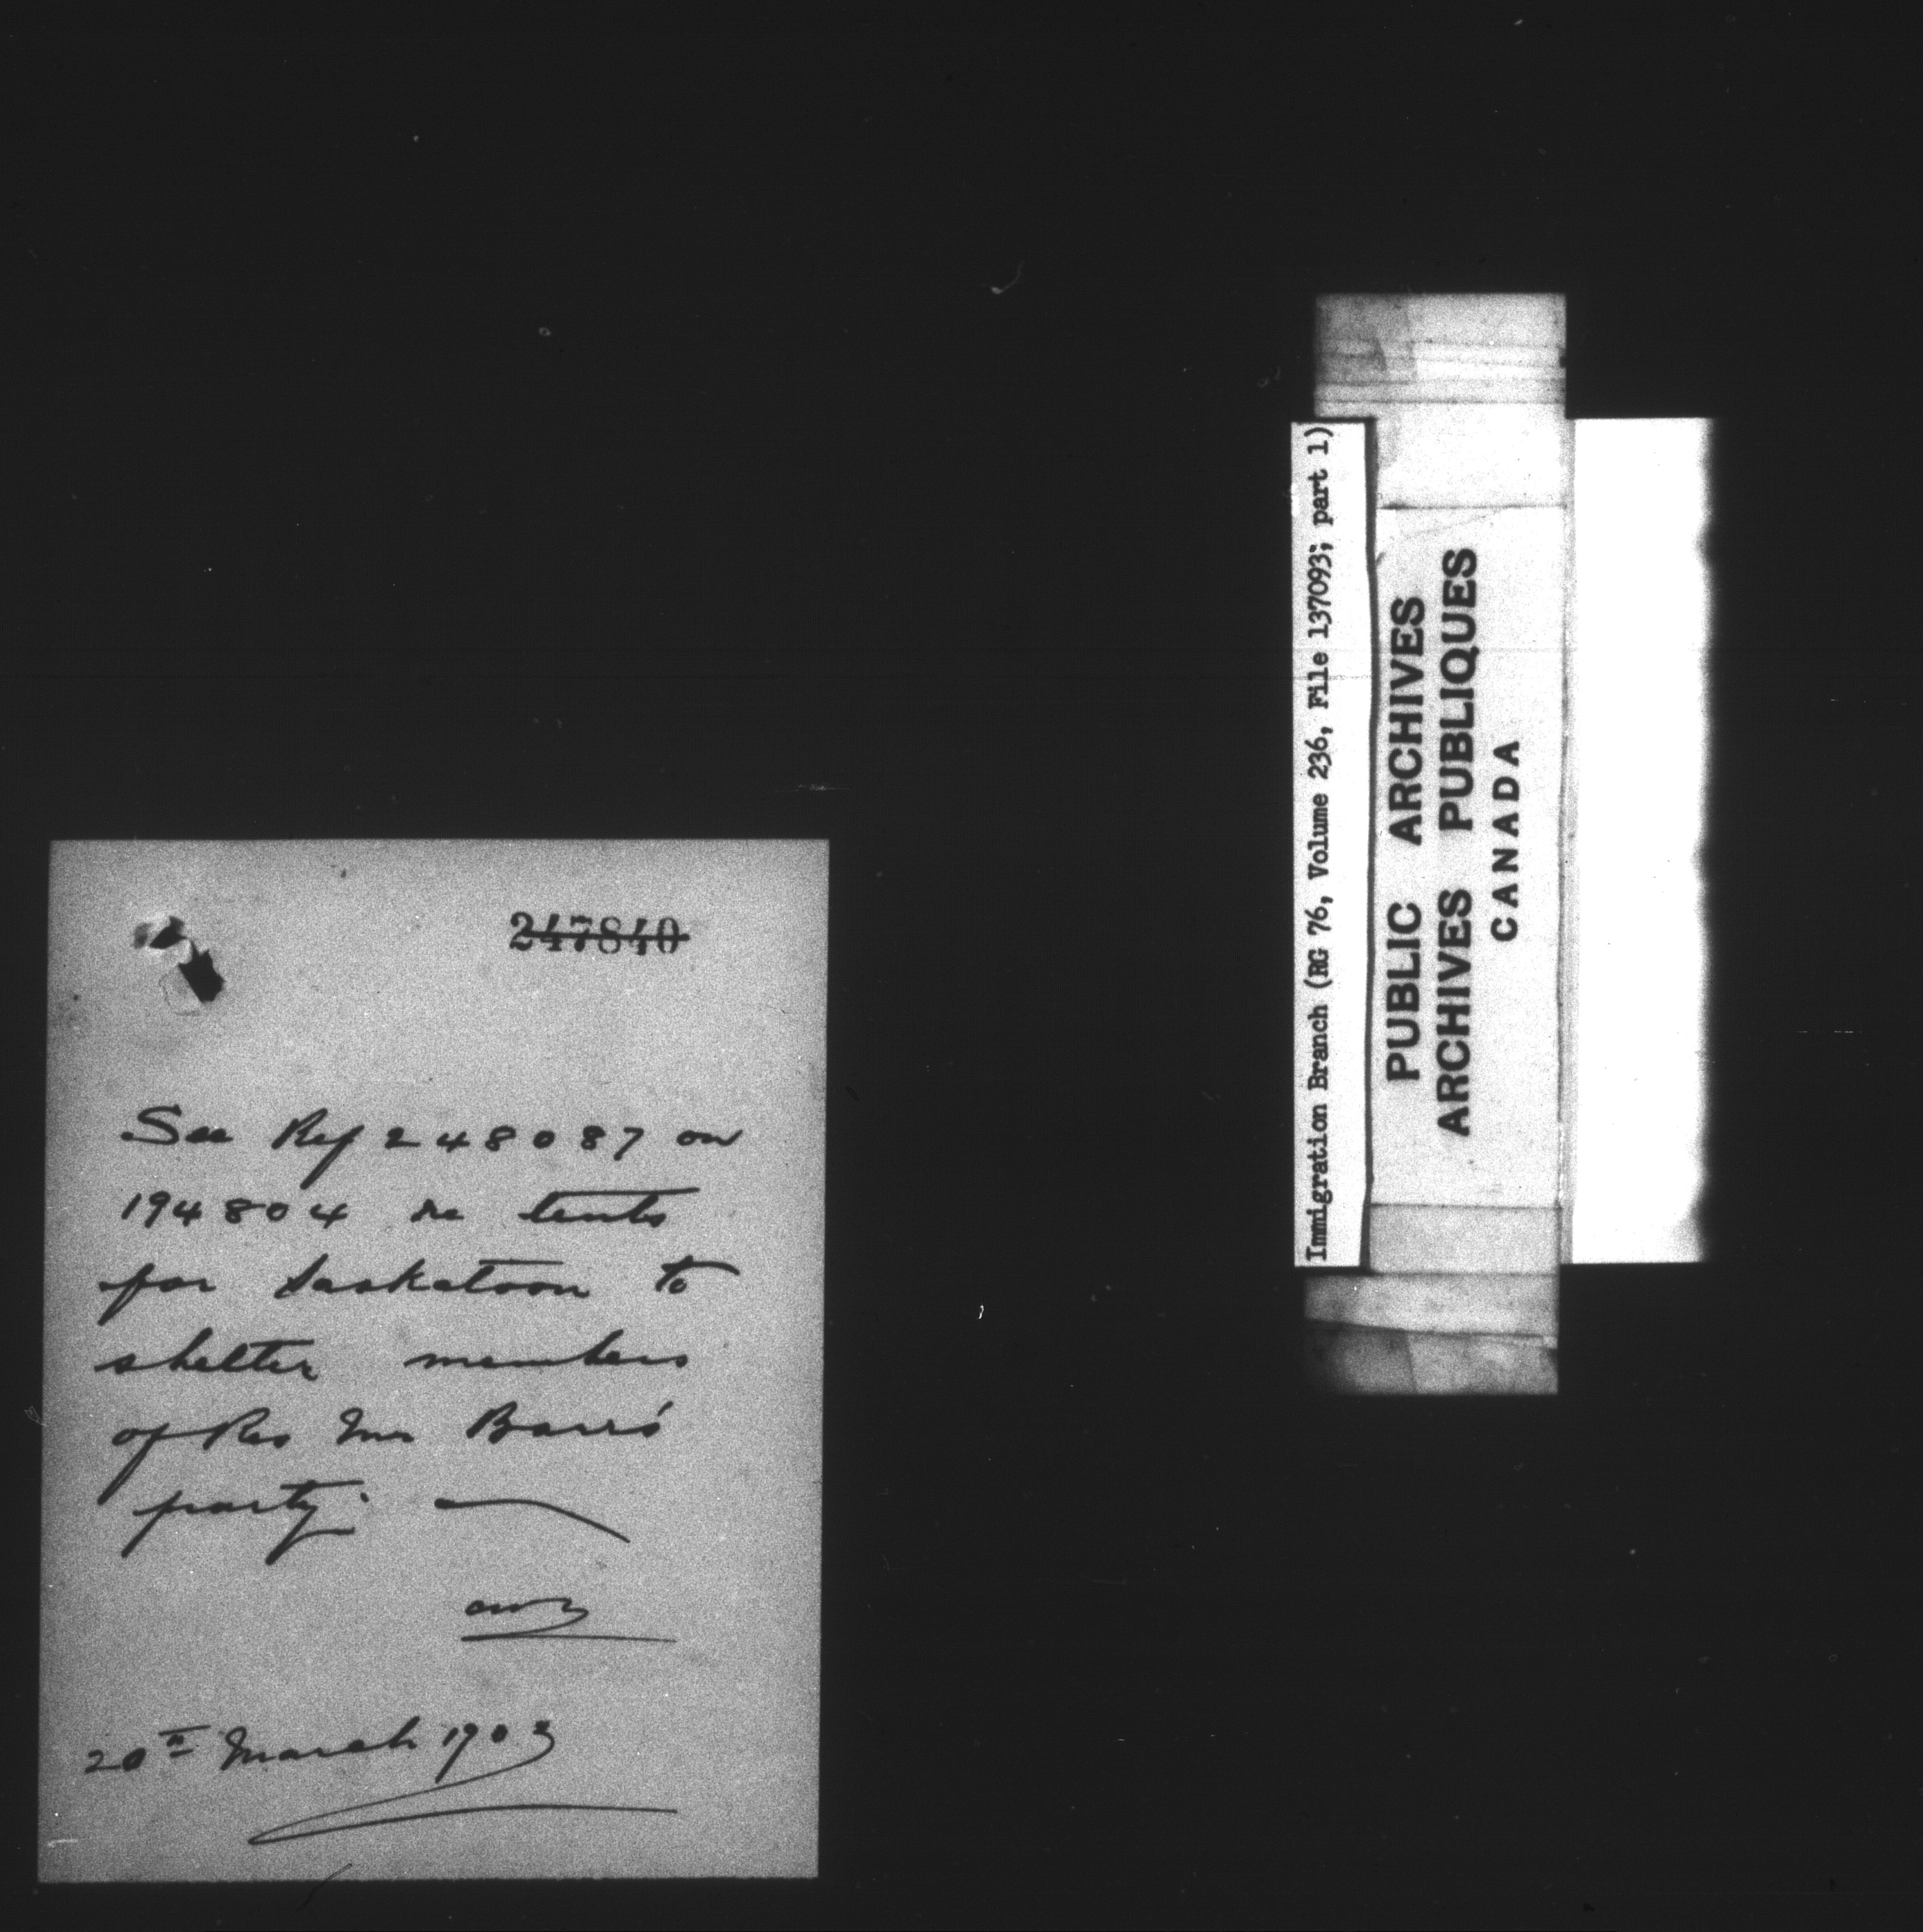 247840
See Ref 248087 on
194804 re tents
for Saskatoon to
shelter members
of Rev Mr Barr's
party.
20th March 1903
Immigration Branch (RG 76, Volume 236, File 137093; part 1)
PUBLIC ARCHIVES
ARCHIVES PUBLIQUES
CANADA